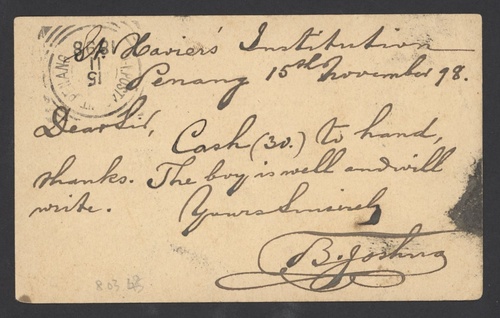 St. Xavier's Institution
Penang 15th November 98.
Dear Sir,
Cash (30.) to hand,
thanks. The boy is well and will
write. Yours Sincerely
B. Joshua
PENANG
15
11
1898
803